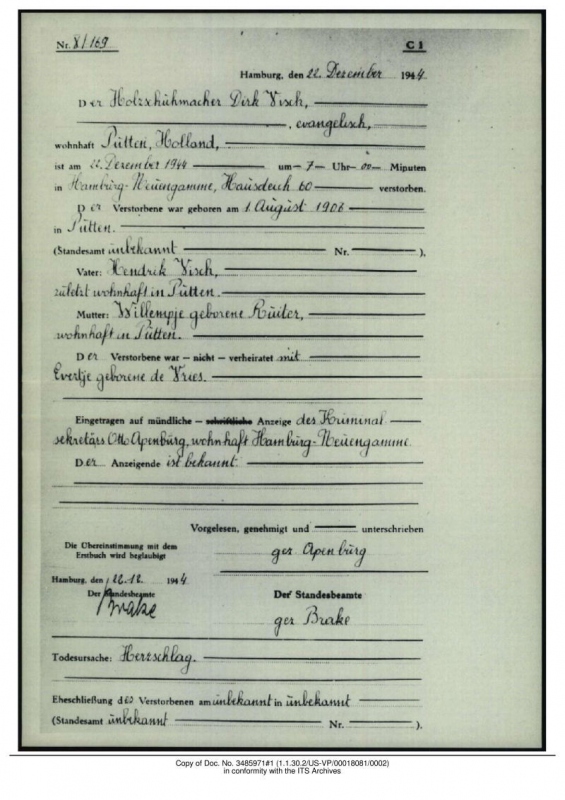 Nr. 8/169 C 1
Hamburg, den 22. Dezember 1944
Der Holzschuhmacher Dirk Visch,
, evangelisch,
wohnhaft Putten, Holland,
ist am 22. Dezember 1944 um 7 Uhr 00 Minuten
in Hamburg-Neuengamme, Hausdeich 60 verstorben.
Der Verstorbene war geboren am 1. August 1906
in Putten.
(Standesamt unbekannt Nr. ).
Vater: Hendrik Visch,
zuletzt wohnhaft in Putten.
Mutter: Willempje geborene Ruiter,
wohnhaft in Putten.
Der Verstorbene war – nicht – verheiratet mit
Evertje geborene de Vries.
Eingetragen auf mündliche – schriftliche Anzeige des Kriminal-
sekretärs Otto Apenburg, wohnhaft Hamburg-Neuengamme.
Der Anzeigende ist bekannt.
Vorgelesen, genehmigt und unterschrieben
Die Übereinstimmung mit dem
Erstbuch wird beglaubigt
gez Apenburg
Hamburg, den 22.12. 1944
Der Standesbeamte
Brake
Der Standesbeamte
gez Brake
Todesursache: Herzschlag.
Eheschließung des Verstorbenen am unbekannt in unbekannt
(Standesamt unbekannt Nr. ).
Copy of Doc. No. 3485971#1 (1.1.30.2/US-VP/00018081/0002)
in conformity with the ITS Archives